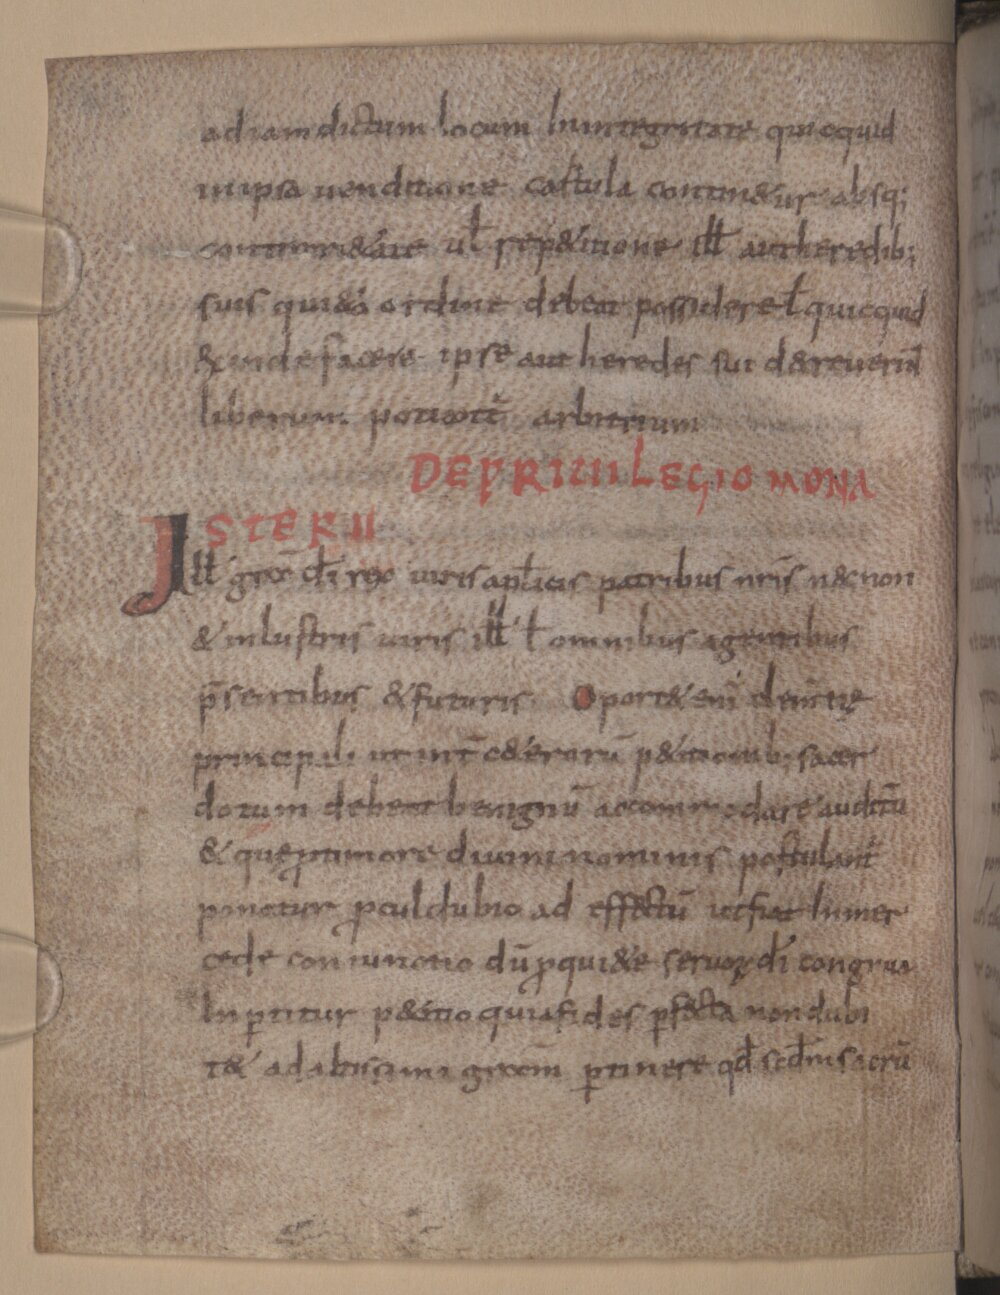 ad iam dictum locum In integritate quicquid
in ipsa uenditione cartula contin&ur absq;
ul rep&itione ill aut heredib;
suis qui&o ordine debeat possidere ł quicquid
& inde facere ipse aut heredes sui decreuerin̄
liberum potiatur arbitrium
DE PRIUILEGIO MONA
STERII
Ill gra di rex uiris aplicis patribus nris necnon
& inlustris uiris ill ł omnibus agentibus
p̄sentibus & futuris Oport& eni clemtię
principali ut int c&erarū p&itionib; sacer
dotum debeat benignū accommodare auditū
& quę p timore diuini nominis postulant̄
ponatur pculdubio ad effectū ut fiat In mer
cede coniunctio dū p qui&e seruorū di congrua
Inptitur p&itio quia fides pfecta non dubi
t& ad altissimi gratiam ptinere qd scdm sacrū